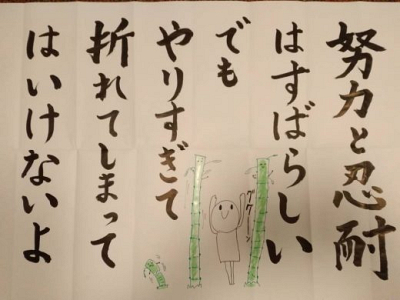 努力と忍耐
はすばらしい
でも
やりすぎて
折れてしまって
はいけないよ
グググーン